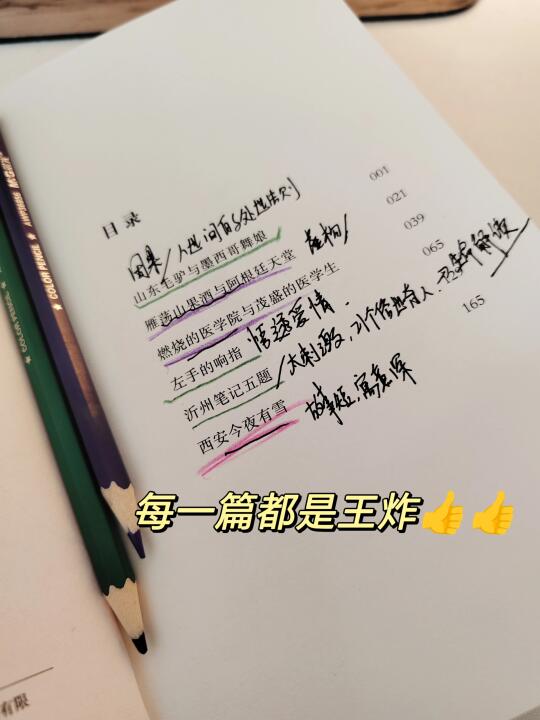 目录
因果/人世间
处世法则
001
山东毛驴与墨西哥舞娘
021
雁荡山果酒与阿根廷天堂
虚构/
039
燃烧的医学院与茂盛的医学生
065
左手的响指
爱情.
沂州笔记五题
/太刺激,
165
西安今夜有雪
故事短,寓意深
每一篇都是王炸👍👍
COLOR PENCIL
COLOR PENCIL
有限